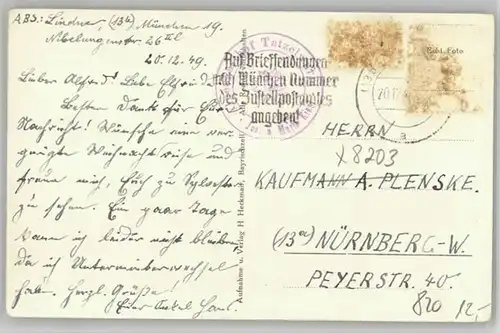 ABS: Lindner, (13b) München 19.
Nibelungenstr. 26 III
20.12.49.
Lieber Alfred! Liebe Elfriede!
Besten Dank für Eure
Nachricht! Wünsche eine ver-
gnügte Weihnachtsreise und
freue mich, Euch zu Sylvester
zu sehen. Ein paar Tage
kann ich leider nicht bleiben,
da ich Untermieterwechsel
habe. Herzl. Grüße!
Euer Onkel Hans.
Auf Briefsendungen
nach München Nummer
des Zustellpostamtes
angeben!
Tatzel
Echt. Foto
20.12.
a
Aufnahme u. Verlag H Heckmair, Bayrischzell
HERRN
x 8203
KAUFMANN A. PLENSKE.
(13a) NÜRNBERG-W.
PEYERSTR. 40.
820 12,-